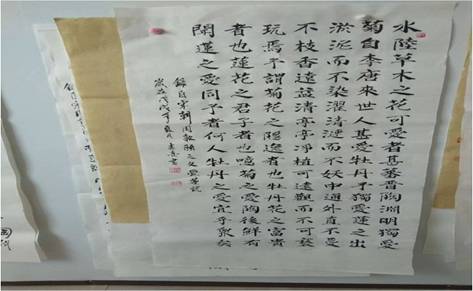 水陸草木之花可愛者甚蕃晉陶淵明獨愛
菊自李唐來世人甚愛牡丹予獨愛蓮之出
淤泥而不染濯清漣而不妖中通外直不蔓
不枝香遠益清亭亭淨植可遠觀而不可褻
玩焉予謂菊花之隱逸者也牡丹花之富貴
者也蓮花之君子者也噫菊之愛陶後鮮有
聞蓮之愛同予者何人牡丹之愛宜乎眾矣
錄自宋朝周敦頤之文
歲在戊戌年夏月書